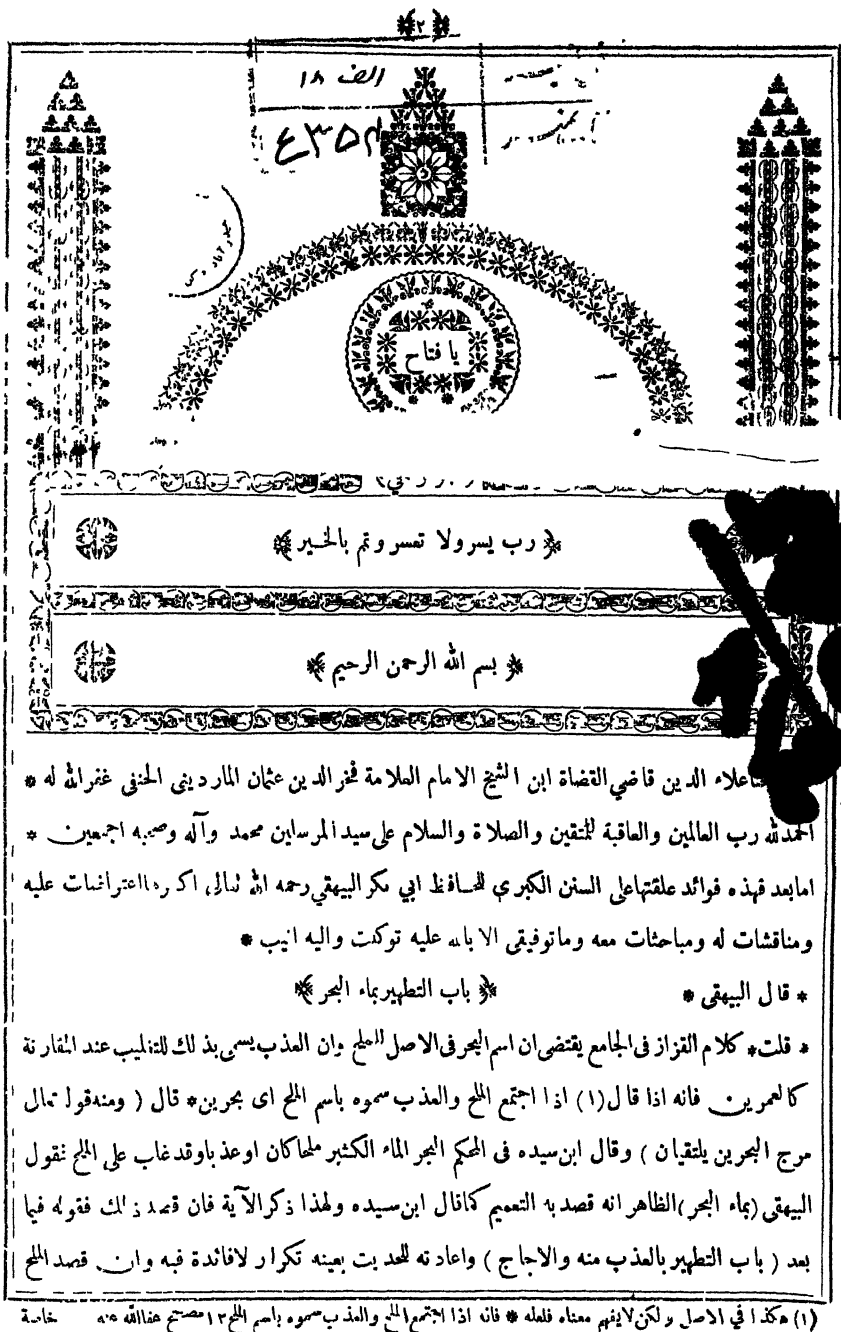 ﴿ ٢ ﴾
الف ١٨
٤٣٥٢
حيدرآباد دكن
يا فتاح
﴿ رب يسر ولا تعسر وتم بالخير ﴾
﴿ بسم الله الرحمن الرحيم ﴾
علاء الدين قاضي القضاة ابن الشيخ الامام العلامة فخر الدين عثمان المارديني الحنفي غفر الله له *
الحمد لله رب العالمين والعاقبة للمتقين والصلاة والسلام على سيد المرسلين محمد وآله وصحبه اجمعين *
اما بعد فهذه فوائد علقتها على السنن الكبرى للحافظ ابي بكر البيهقي رحمه الله تعالى اكثرها اعتراضات عليه
ومناقشات له ومباحثات معه وما توفيقي الا بالله عليه توكلت واليه انيب *
* قال البيهقي * ﴿ باب التطهير بماء البحر ﴾
* قلت * كلام القزاز في الجامع يقتضى ان اسم البحر في الاصل للملح وان العذب يسمى بذلك للتغليب عند المقارنة
كالعمرين فانه اذا قال (١) اذا اجتمع الملح والعذب سموه باسم الملح اى بحرين * قال ( ومنه قوله تعالى
مرج البحرين يلتقيان ) وقال ابن سيده في المحكم البحر الماء الكثير ملحا كان او عذبا وقد غلب على الملح فقول
البيهقي (بماء البحر) الظاهر انه قصد به التعميم كما قال ابن سيده ولهذا ذكر الآية فان قصد ذلك فقوله فيما
بعد ( باب التطهير بالعذب منه والاجاج ) واعادته للحديث بعينه تكرار لا فائدة فيه وان قصد الملح
(١) هكذا في الاصل ولكن لايفهم معناه فلعله * فانه اذا اجتمع الملح والعذب سموه باسم الملح ١٢ مصحح عفا الله عنه
خاصة